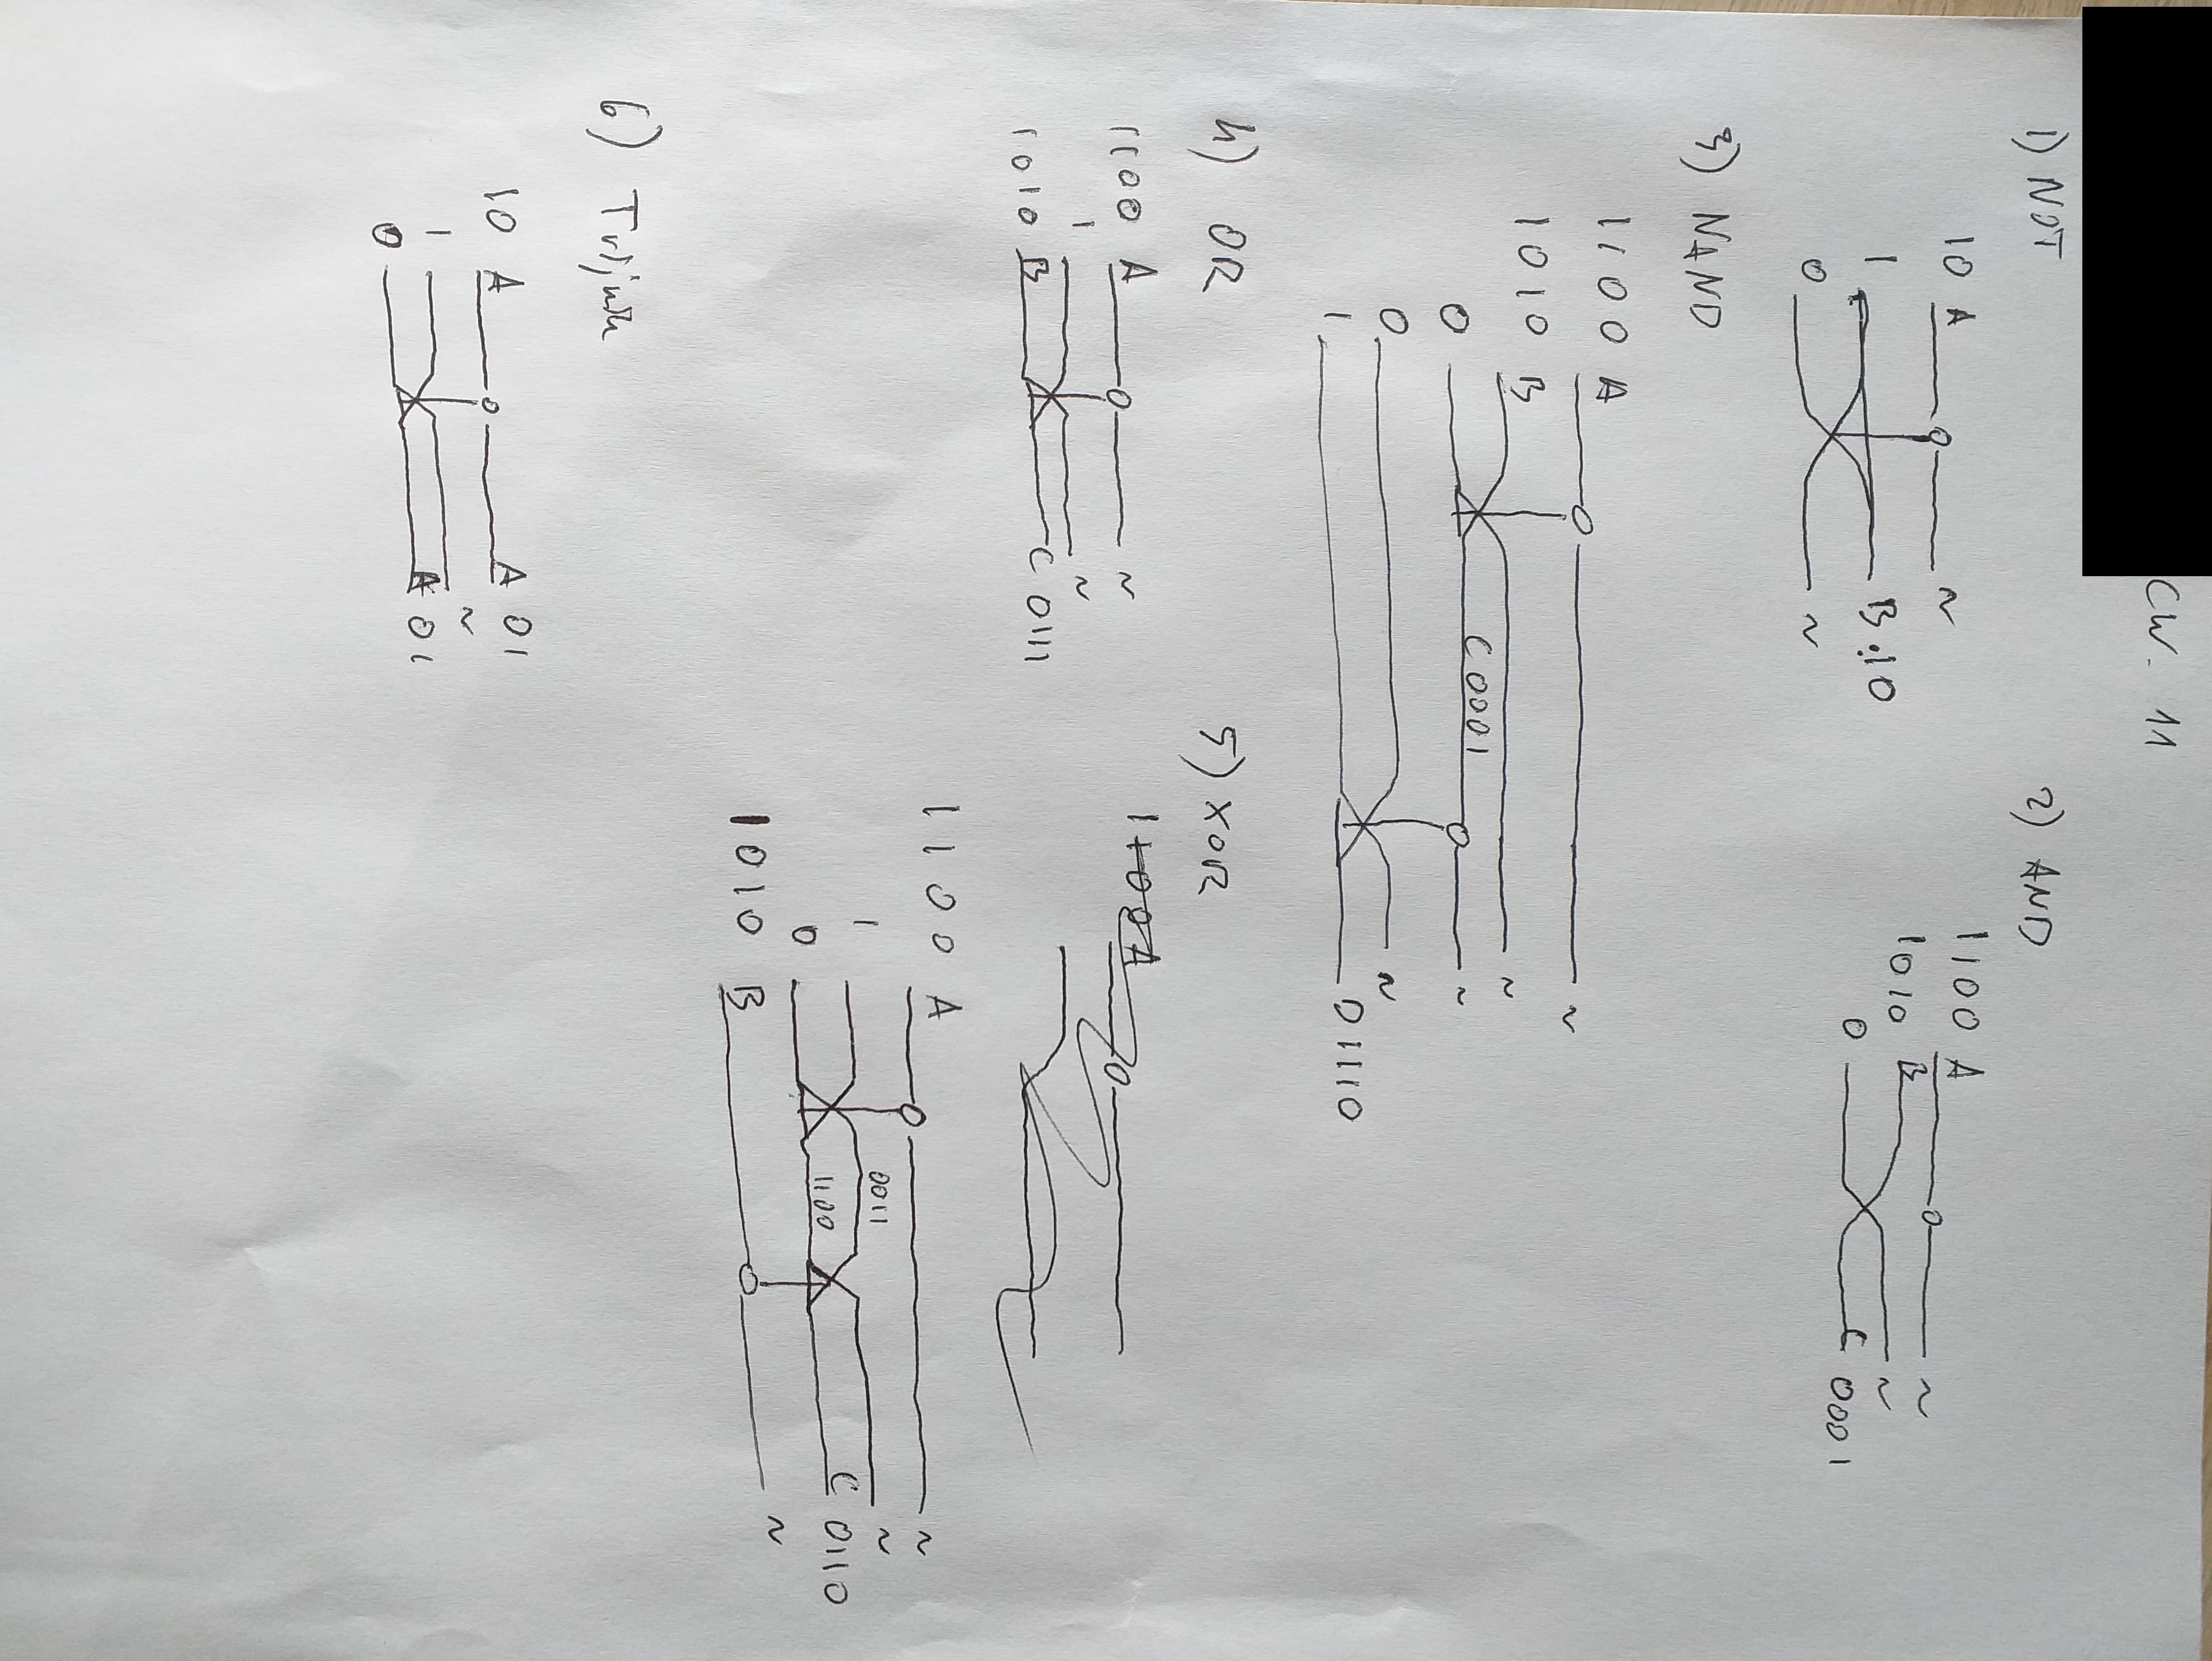 CW. 11
1) NOT
10 A ~
1 B:10
0 ~
2) AND
1100 A ~
1010 B ~
0 C 0001
3) NAND
1100 A ~
1010 B ~
0 C0001 ~
0 ~
1 01110
4) OR
1100 A ~
1 ~
1010 B C 0111
5) XOR
1100 A ~
1 0011 ~
0 1100 C 0110
1010 B ~
6)
10 A A 01
1 ~
0 A 01